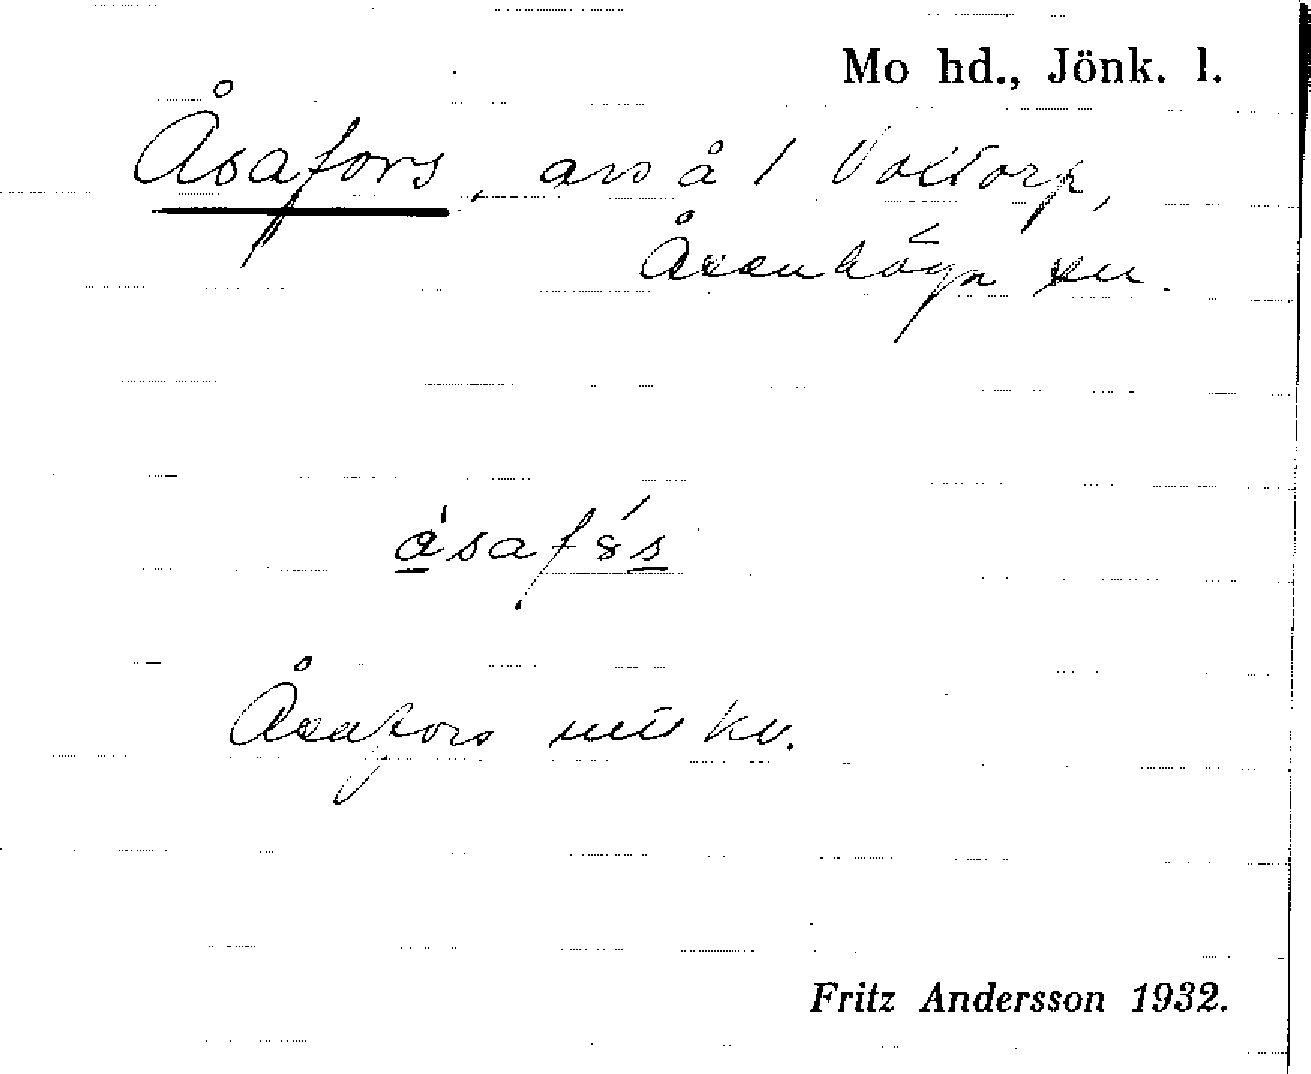 Mo hd., Jönk. l.
Åsafors, avs å 1 Valtorp,
Åsenhöga sn.
Åsafors mtlkv.
Fritz Andersson 1932.